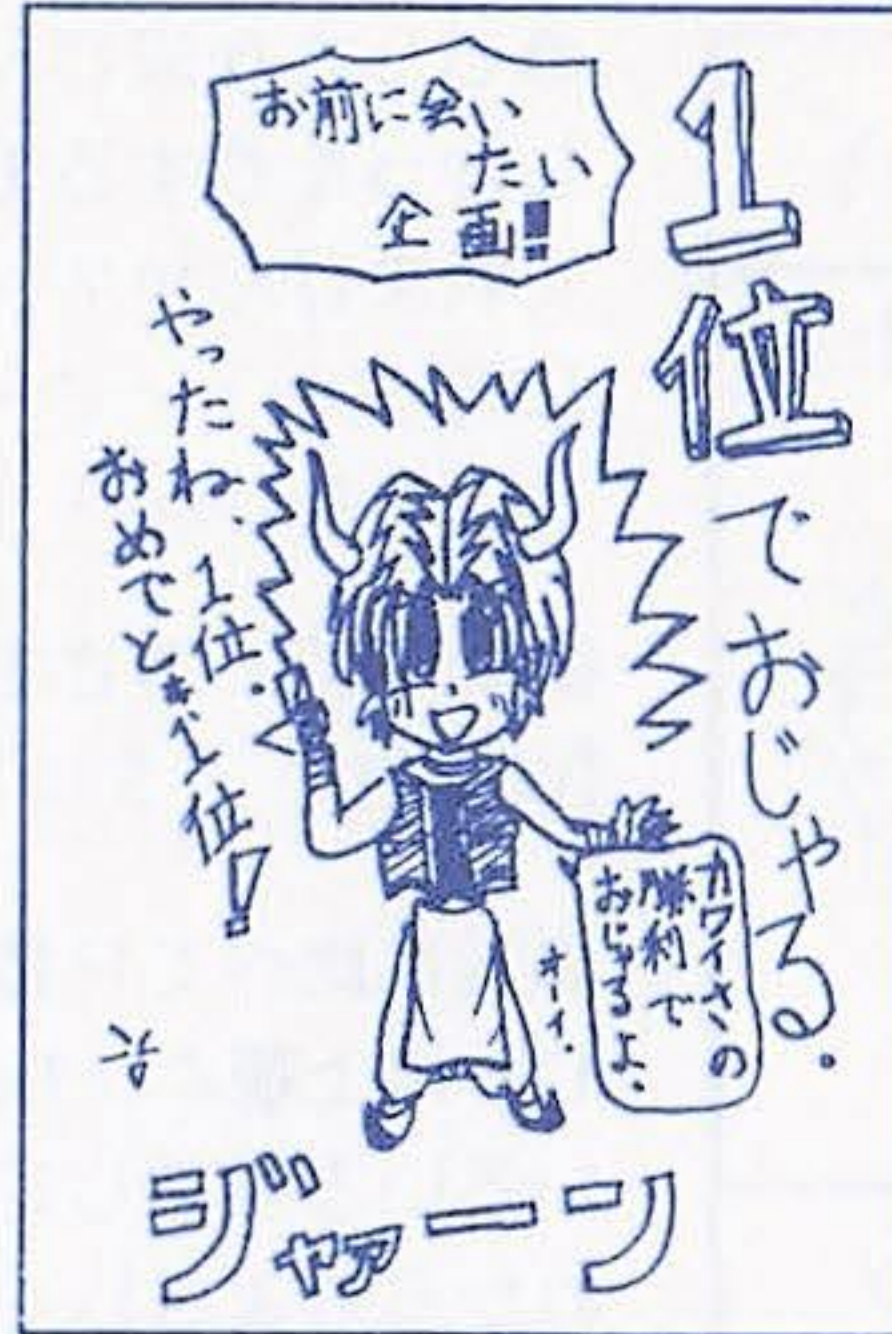 お前に会い
たい
企画!!
1位でおじゃる。
やったね、1位。
おめでと*1位!
カワイさの
勝利で
おじゃるよ。
オーイ。
ジャァーン